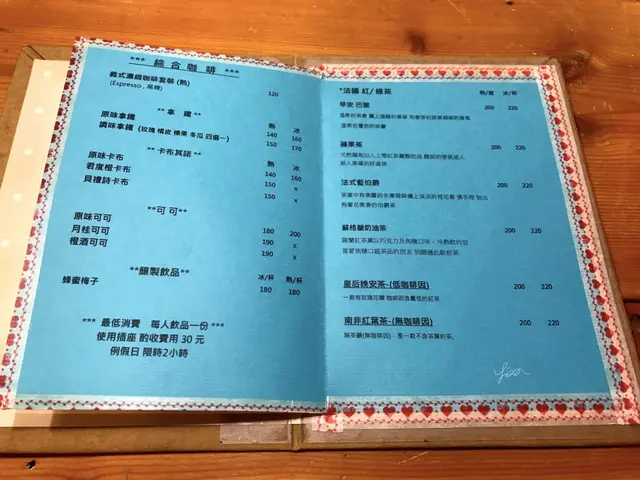 *** 綜合咖啡 ***
義式濃縮咖啡套裝 (熱) 120
(Espresso , 黑糖)
** 拿 鐵 ** 熱 冰
原味拿鐵 140 160
調味拿鐵 (玫瑰 橘皮 榛果 冬瓜 四選一) 150 170
** 卡布其諾 ** 熱 冰
原味卡布 140 160
君度橙卡布 150 x
貝禮詩卡布 150 x
**可 可**
原味可可 180 200
月桂可可 190 x
橙酒可可 190 x
**釀製飲品** 冰/杯 熱/杯
蜂蜜梅子 180 180
*** 最低消費 每人飲品一份 ***
使用插座 酌收費用 30 元
例假日 限時2小時
*法國 紅/ 綠茶 熱/壺 冰/杯
早安 巴黎 200 220
蘋果茶 200 220
法式藍伯爵 200 220
蘇格蘭奶油茶 200 220
錫蘭紅茶葉以巧克力及焦糖口味,
皇后晚安茶-(低咖啡因) 200 220
一款有玫瑰花瓣 咖啡因含量低的紅茶
南非紅葉茶-(無咖啡因) 200 220